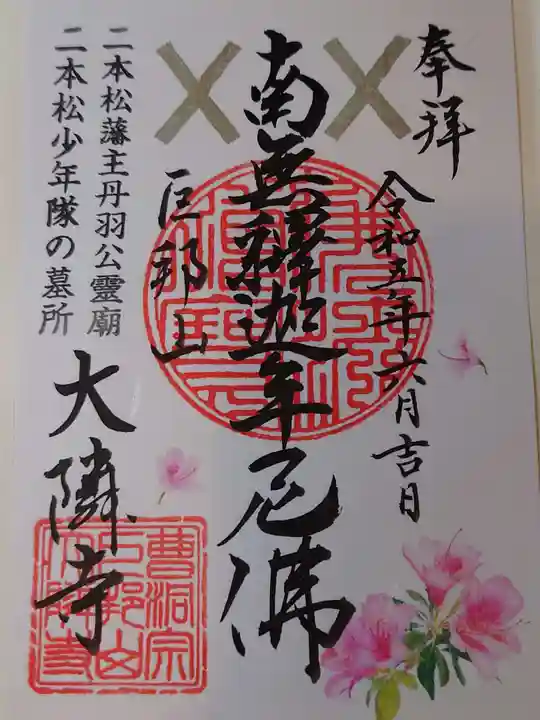 奉拝
令和五年六月吉日
南無釋迦牟尼佛
巨邦山
大隣寺
二本松藩主丹羽公靈廟
二本松少年隊の墓所
曹洞宗
巨邦山
大隣寺